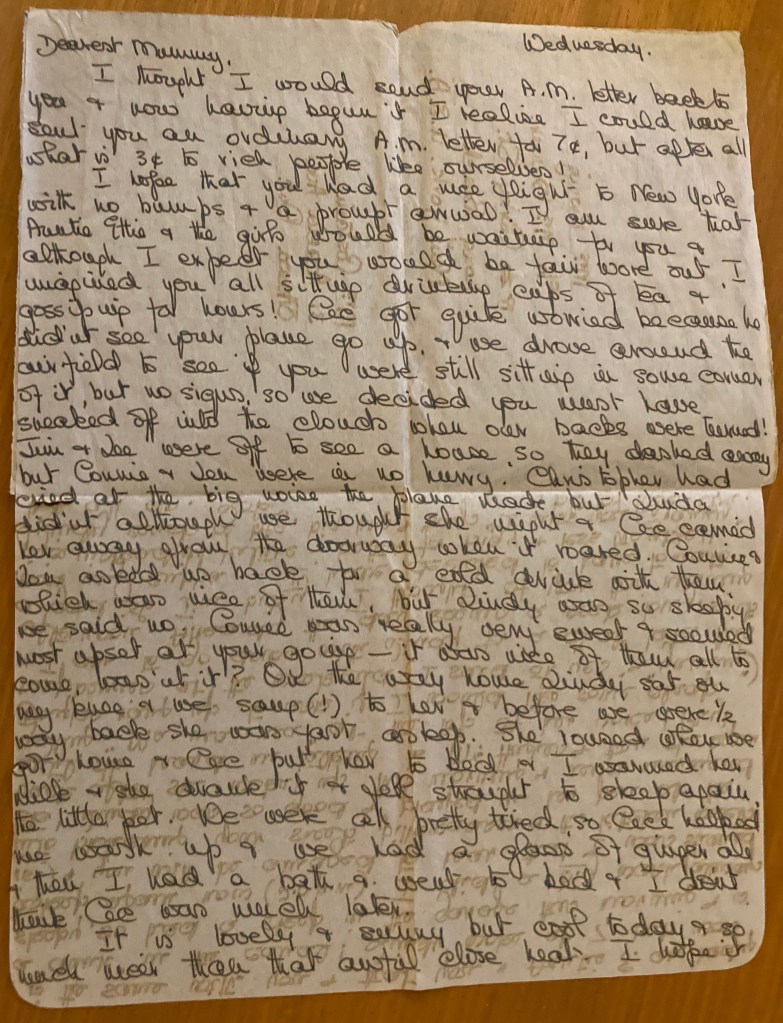 Dearest Mummy,
Wednesday.
I thought I would send your A.M. letter back to
you & now having begun it I realise I could have
sent you an ordinary A.M. letter for 7¢, but after all
what is 3¢ to rich people like ourselves!
I hope that you had a nice flight to New York
with no bumps & a prompt arrival. I am sure that
Auntie Ettie & the girls would be waiting for you &
although I expect you would be fair wore out I
imagined you all sitting drinking cups of tea &
gossiping for hours! Cec got quite worried because he
did'nt see your plane go up, & we drove around the
airfield to see if you were still sitting in some corner
of it, but no signs, so we decided you must have
sneaked off into the clouds when our backs were turned!
Jim & Joe were off to see a house so they dashed away
but Connie & Jen were in no hurry. Christopher had
cried at the big noise the plane made but Linda
did'nt although we thought she might & Cec carried
her away from the doorway when it roared. Connie &
Jen asked us back for a cold drink with them,
which was nice of them, but Lindy was so sleepy
we said no. Connie was really very sweet & seemed
most upset at your going — it was nice of them all to
come, was'nt it? On the way home Lindy sat on
my knee & we sang (!) to her & before we were ½
way back she was fast asleep. She roused when we
got home & Cec put her to bed & I warmed her
milk & she drank it & fell straight to sleep again,
the little pet. We were all pretty tired, so Cec helped
me wash up & we had a glass of ginger ale
& then I had a bath & went to bed & I don't
think Cec was much later.
It is lovely & sunny but cool today & so
much nicer than that awful close heat. I hope it